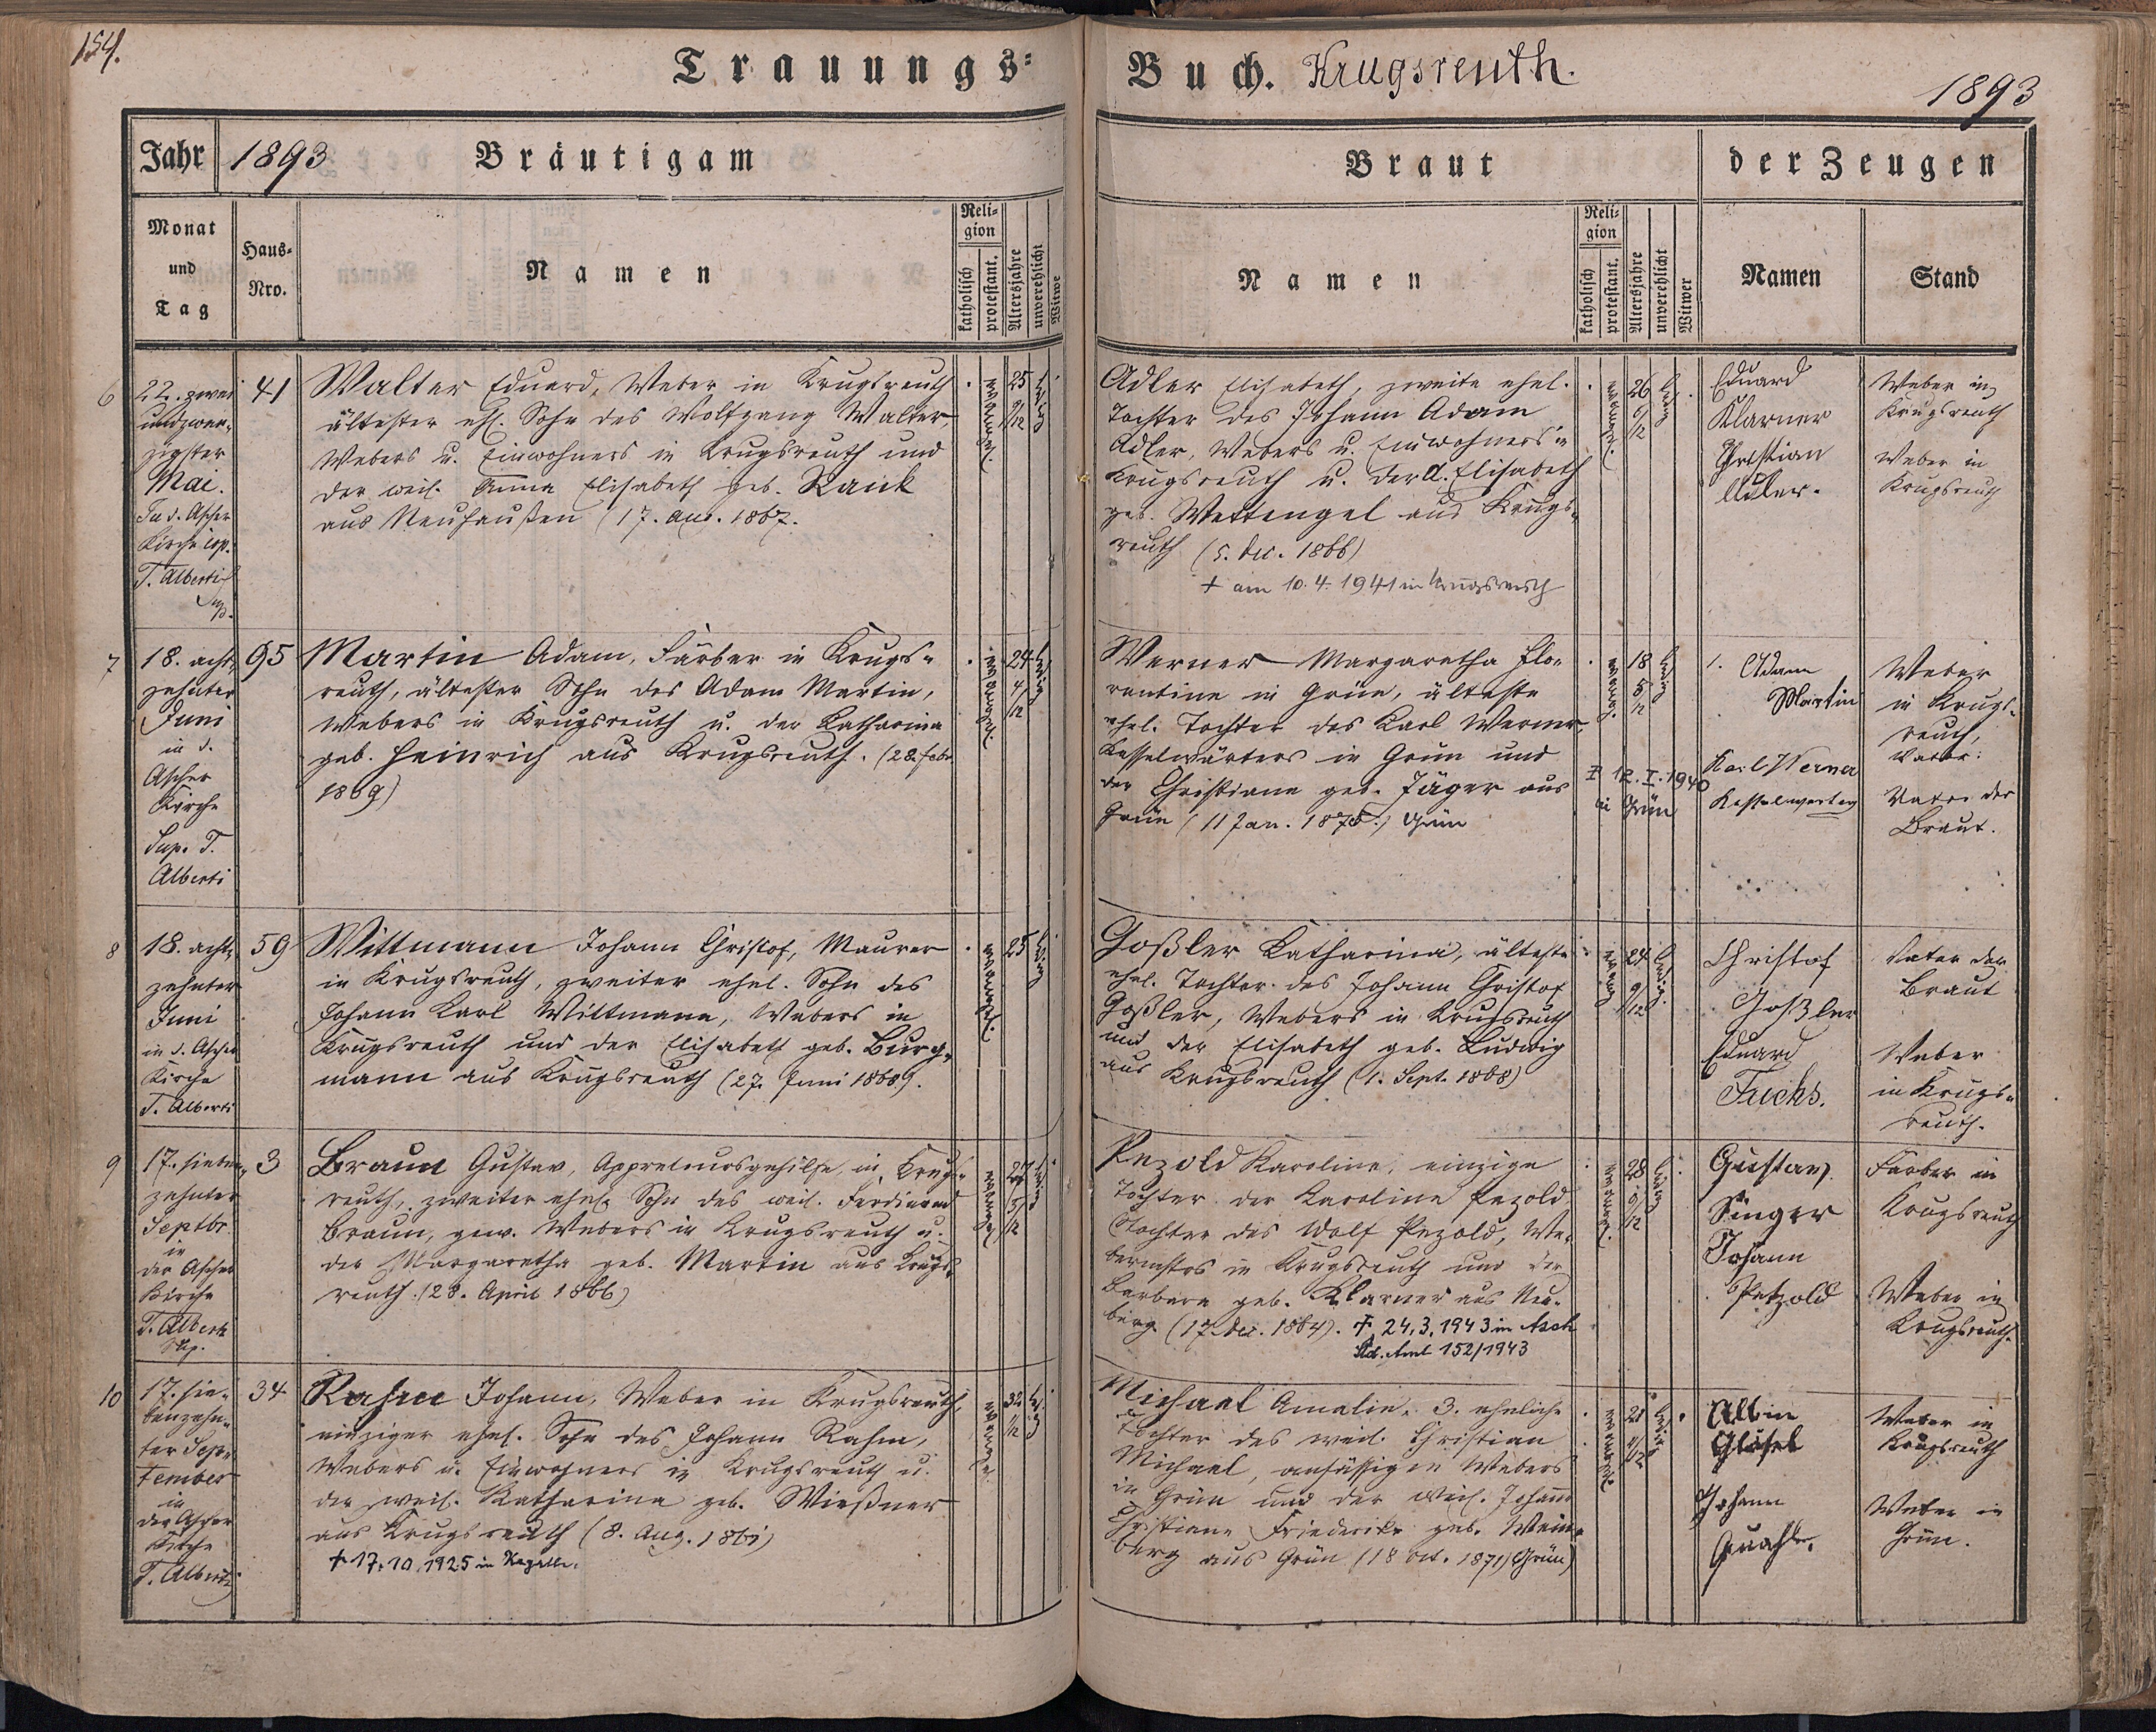 154.
Trauungs-
Buch. Krugsreuth.
1893
Jahr 1893 Bräutigam
Braut
der Zeugen
Monat
und
Tag
Haus-
Nro.
Namen
Reli-
gion
katholisch
protestant.
Altersjahre
unverehlicht
Witwe
Namen
Reli-
gion
katholisch
protestant.
Altersjahre
unverehlicht
Witwer
Namen
Stand
6
22. zwei
undzwan-
zigster
Mai.
In d. Ascher
Kirche cop.
T. Alberti
Sup.
41
Walter Eduard, Weber in Krugsreuth
ältester ehl. Sohn des Wolfgang Walter,
Webers u. Einwohners in Krugsreuth und
der weil. Anna Elisabeth geb.
aus Neuhausen (17. Aug. 1867.
25
Adler Elisabeth, zweite ehel.
Tochter des Johann Adam
Adler, Webers u. Einwohners in
Krugsreuth u. der A. Elisabeth
geb. Wettengel aus Krugs-
reuth (5. Dec. 1866)
+ am 10.4.1941 in Krugsreuth
26
6/12
Eduard
Klarner
Christian
Adler.
Weber in
Krugsreuth
Weber in
Krugsreuth
7
18. acht-
zehnter
Juni
in d.
Ascher
Kirche
Sup. T.
Alberti
95
Martin Adam, Färber in Krugs-
reuth, ältester Sohn des Adam Martin,
Webers in Krugsreuth u. der Katharina
geb. Heinrich aus Krugsreuth. (28. Febr
1869)
24
4/12
Werner Margaretha Flo-
rentine in Grün, älteste
ehel. Tochter des Karl Werner,
Kesselwärters in Grün und
der Christiane geb. Jäger aus
Grün (11 Jan. 1875.) Grün
+ 12.I.1940
in Grün
18
5/12
1. Adam
Martin
Karl Werner
Kesselwärter
Weber
in Krugs-
reuth,
Vater.
Vater der
Braut.
8
18. acht-
zehnter
Juni
in d. Ascher
Kirche
T. Alberti
59
Wittmann Johann Christof, Maurer
in Krugsreuth, zweiter ehel. Sohn des
Johann Karl Wittmann, Webers in
Krugsreuth und der Elisabeth geb. Burg-
mann aus Krugsreuth (27. Juni 1868).
25
Goßler Katharina, älteste
ehel. Tochter des Johann Christof
Goßler, Webers in Krugsreuth
und der Elisabeth geb. Ludwig
aus Krugsreuth (1. Sept. 1868)
24
9/12
Christof
Goßler
Eduard
Fuchs.
Vater der
Braut
Weber
in Krugs-
reuth.
9
17. sieben-
zehnter
Septbr.
in
der Ascher
Kirche
T. Alberti
Sup.
3
Braun Gustav, Appreteursgehilfe in Krugs-
reuth, zweiter ehel. Sohn des weil. Ferdinand
Braun, gew. Webers in Krugsreuth u.
der Margaretha geb. Martin aus Krugs-
reuth. (28. April 1866)
27
5/12
Pezold Karoline, einzige
Tochter der Karoline Pezold
Tochter des Wolf Pezold, We-
bermstrs in Krugsreuth und der
Barbara geb. Klarner aus Neu-
berg (17. Dec. 1864). + 24.3.1943 in Asch
Std. Amt 152/1943
28
9/12
Gustav
Singer
Johann
Petzold
Färber in
Krugsreuth
Weber in
Krugsreuth.
10
17. sie-
benzehn-
ter Sep-
tember
in
der Ascher
Kirche
T. Alberti
34
Rahm Johann, Weber in Krugsreuth,
einziger ehel. Sohn des Johann Rahm,
Webers u. Einwohners in Krugsreuth u.
der weil. Katharina geb. Wießner
aus Krugsreuth (8. Aug. 1861)
+ 17.10.1925 in
32
1/12
Michael Amalie, 3. eheliche
Tochter des weil. Christian
Michael, ansässigen Webers
in Grün und der weil. Johann
Christiane Friederike geb. Wein-
berg aus Grün (18 Oct. 1871) Grün)
21
Albin
Gläsel
Johann
Weber in
Krugsreuth
Weber in
Grün.